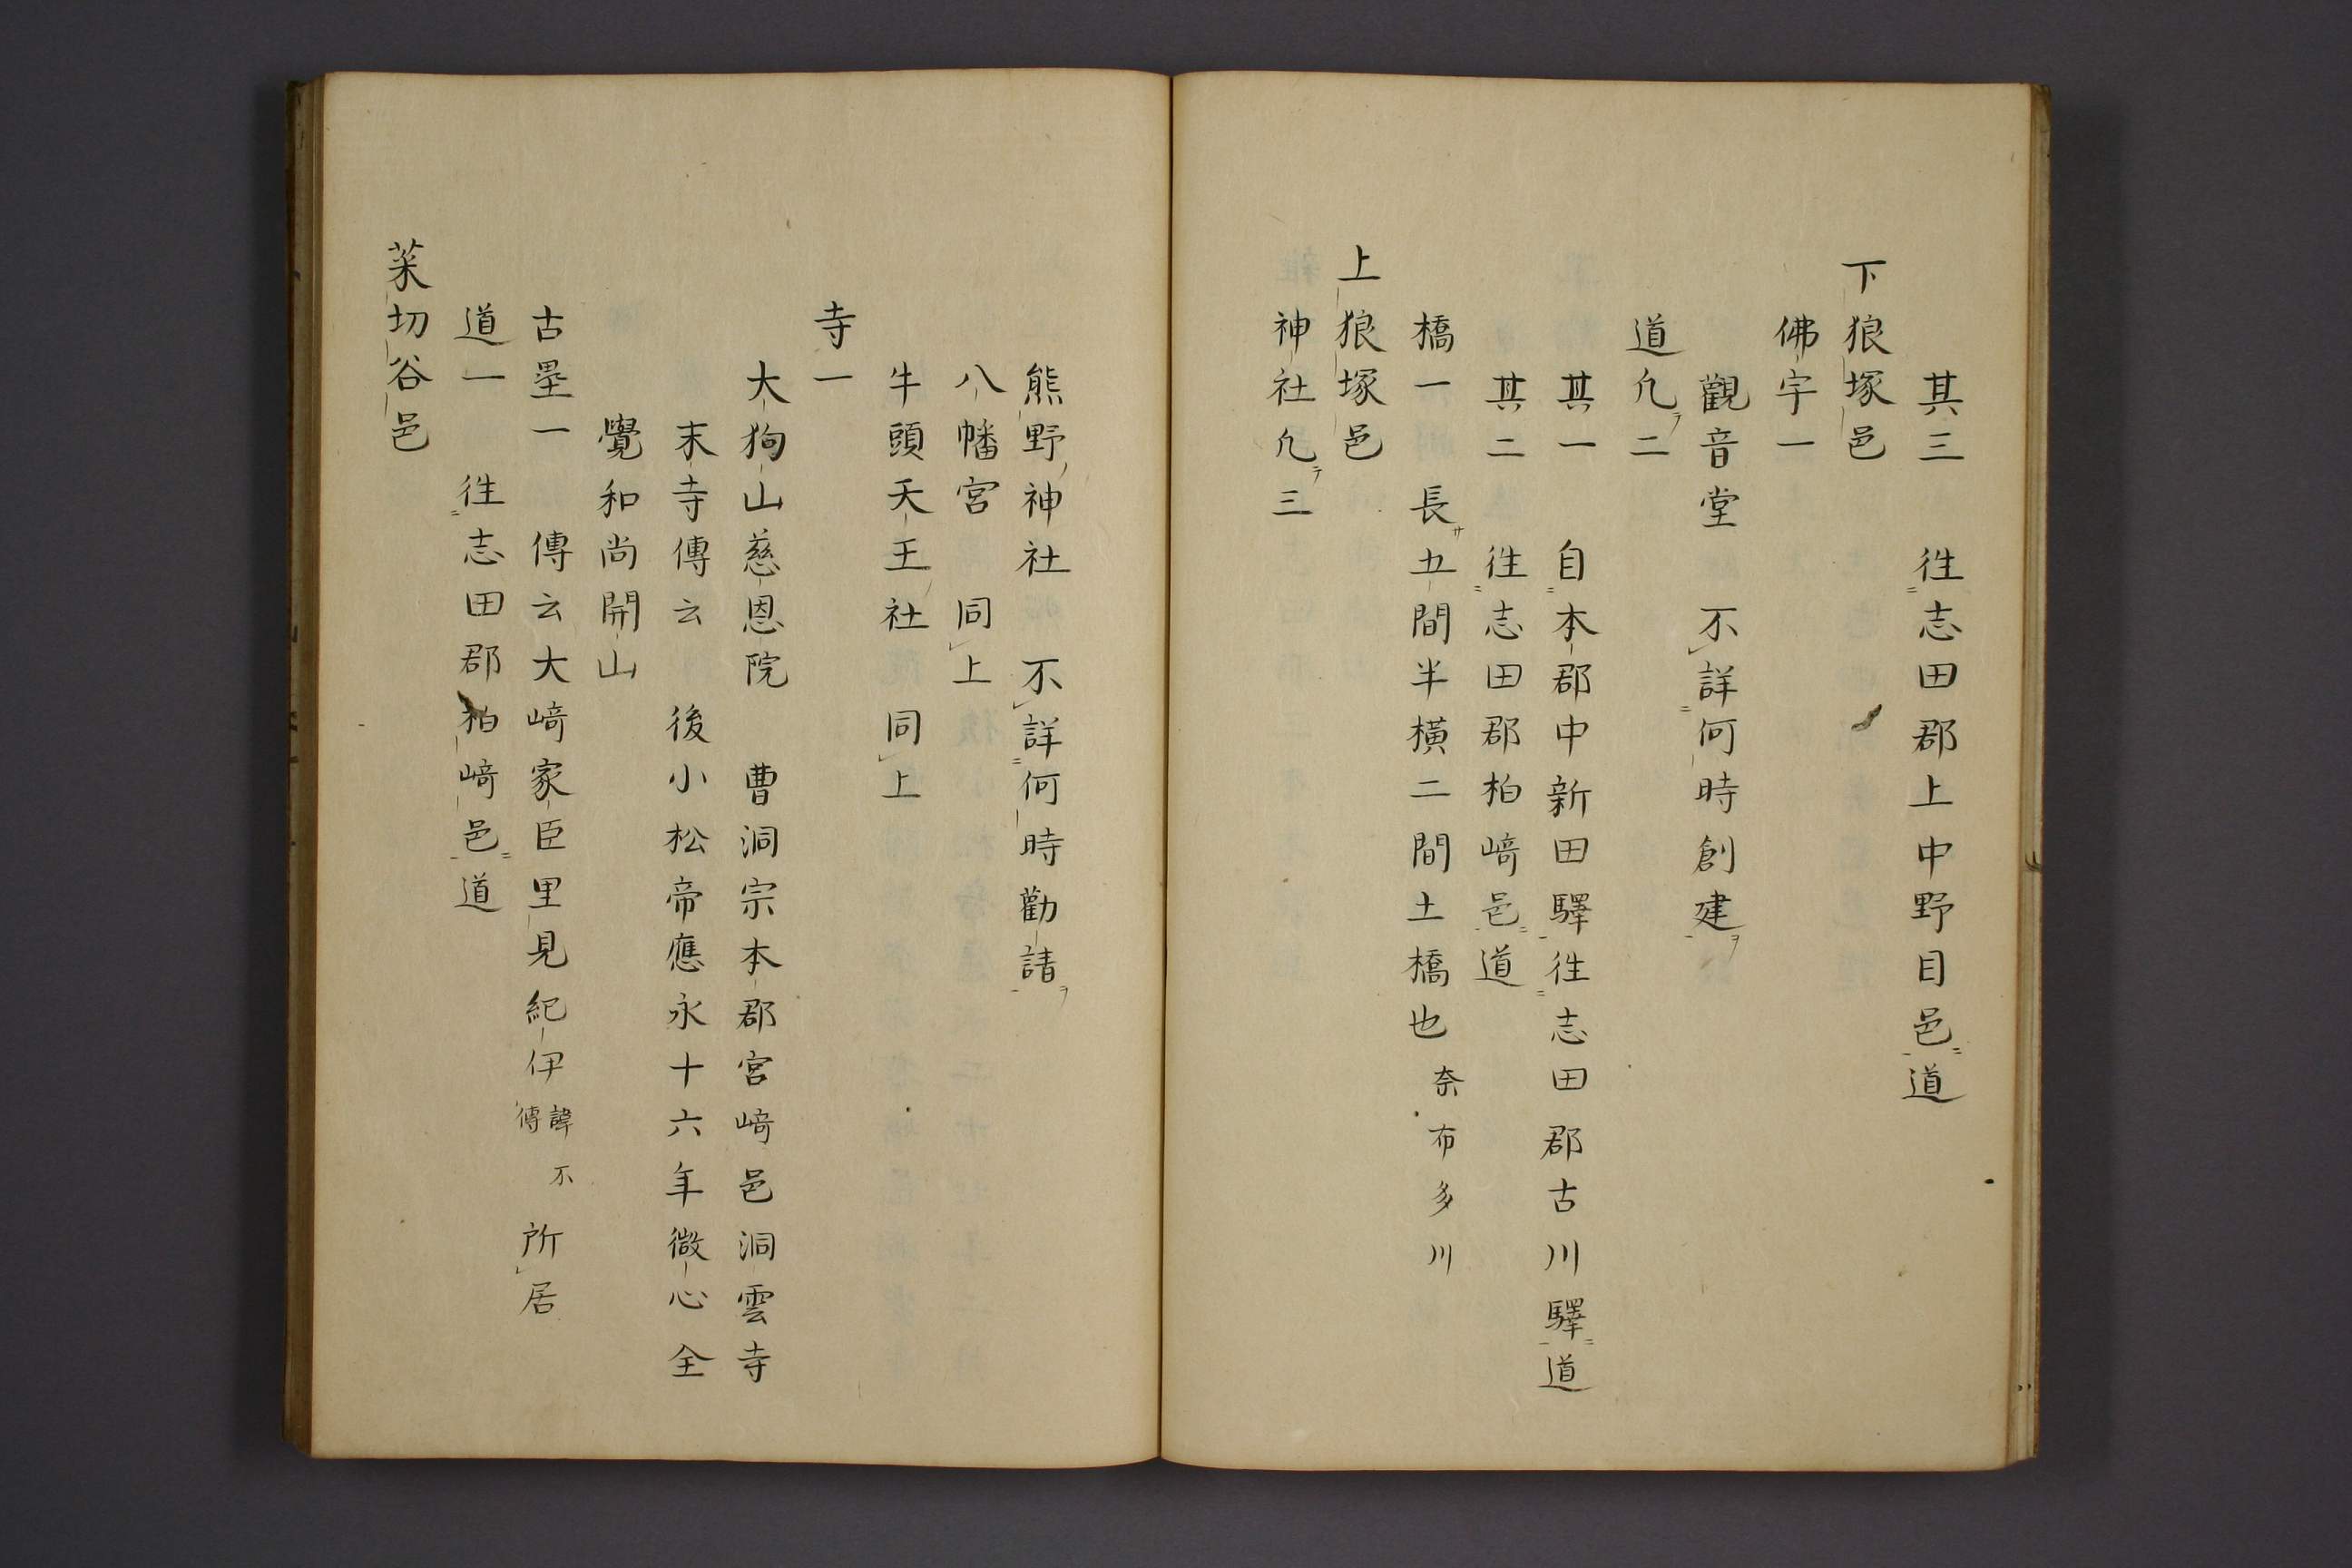 其三　徃志田郡上中野目邑道
下狼塚邑
佛宇一
觀音堂　不詳何時創建
道凢二
其一　自本郡中新田驛徃志田郡古川驛道
其二　徃志田郡柏﨑邑道
橋一　長五間半横二間土橋也　奈布多川
上狼塚邑
神社凢三
熊野神社　不詳何時勸請
八幡宮　同上
牛頭天王社　同上
寺一
大狗山慈恩院　曹洞宗本郡宮﨑邑洞雲寺
末寺傳云　後小松帝應永十六年微心全
覺和尚開山
古壘一　傳云大﨑家臣里見紀伊諱不傳所居
道一　徃志田郡柏﨑邑道
菜切谷邑